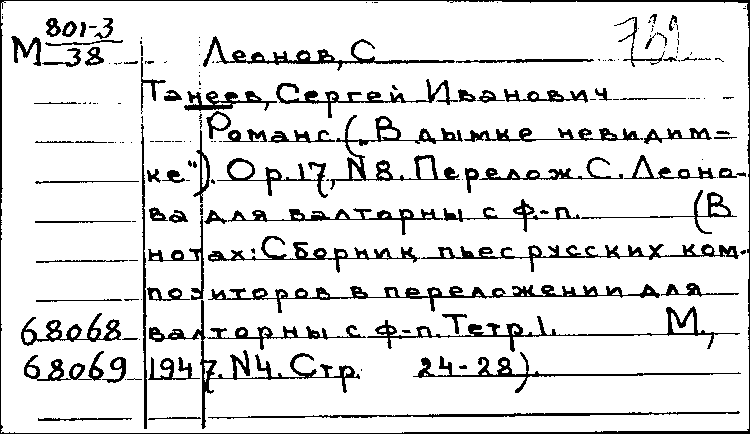 801-3
М 38 Леонов, С 732
Танеев, Сергей Иванович
Романс. („В дымке невидим=
ке"). Op. 17, N 8. Перелож. С. Леоно-
ва для валторны с ф.-п. (В
нотах: Сборник пьес русских ком-
позиторов в переложении для
68068 валторны с ф.-п. Тетр. 1. М.,
68069 1947. N4. Стр. 24-28).